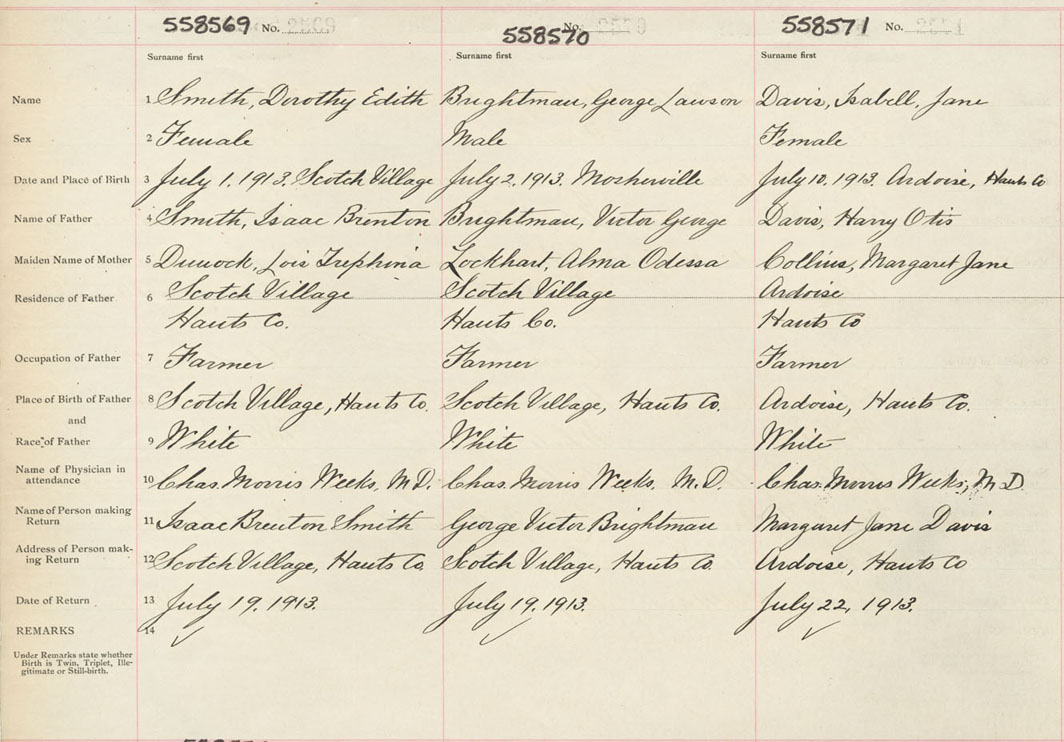 558569 No.
558570 No.
558571 No.
Surname first Surname first Surname first
Name 1 Smith, Dorothy Edith Brightman, George Lawson Davis, Isabell, Jane
Sex 2 Female Male Female
Date and Place of Birth 3 July 1, 1913. Scotch Village July 2, 1913. Mosherville July 10, 1913. Ardoise, Hants Co
Name of Father 4 Smith, Isaac Brenton Brightman, Victor George Davis, Harry Otis
Maiden Name of Mother 5 Dimock, Lois Trephina Lockhart, Alma Odessa Collins, Margaret Jane
Residence of Father 6 Scotch Village Scotch Village Ardoise
Hants Co. Hants Co. Hants Co
Occupation of Father 7 Farmer Farmer Farmer
Place of Birth of Father 8 Scotch Village, Hants Co. Scotch Village, Hants Co. Ardoise, Hants Co.
and
Race of Father 9 White White White
Name of Physician in
attendance 10 Chas. Morris Weeks, M.D. Chas. Morris Weeks, M.D. Chas. Morris Weeks, M.D.
Name of Person making
Return 11 Isaac Brenton Smith George Victor Brightman Margaret Jane Davis
Address of Person mak-
ing Return 12 Scotch Village, Hants Co. Scotch Village, Hants Co. Ardoise, Hants Co
Date of Return 13 July 19, 1913. July 19, 1913. July 22, 1913.
REMARKS 14 ✓ ✓ ✓
Under Remarks state whether
Birth is Twin, Triplet, Ille-
gitimate or Still-birth.